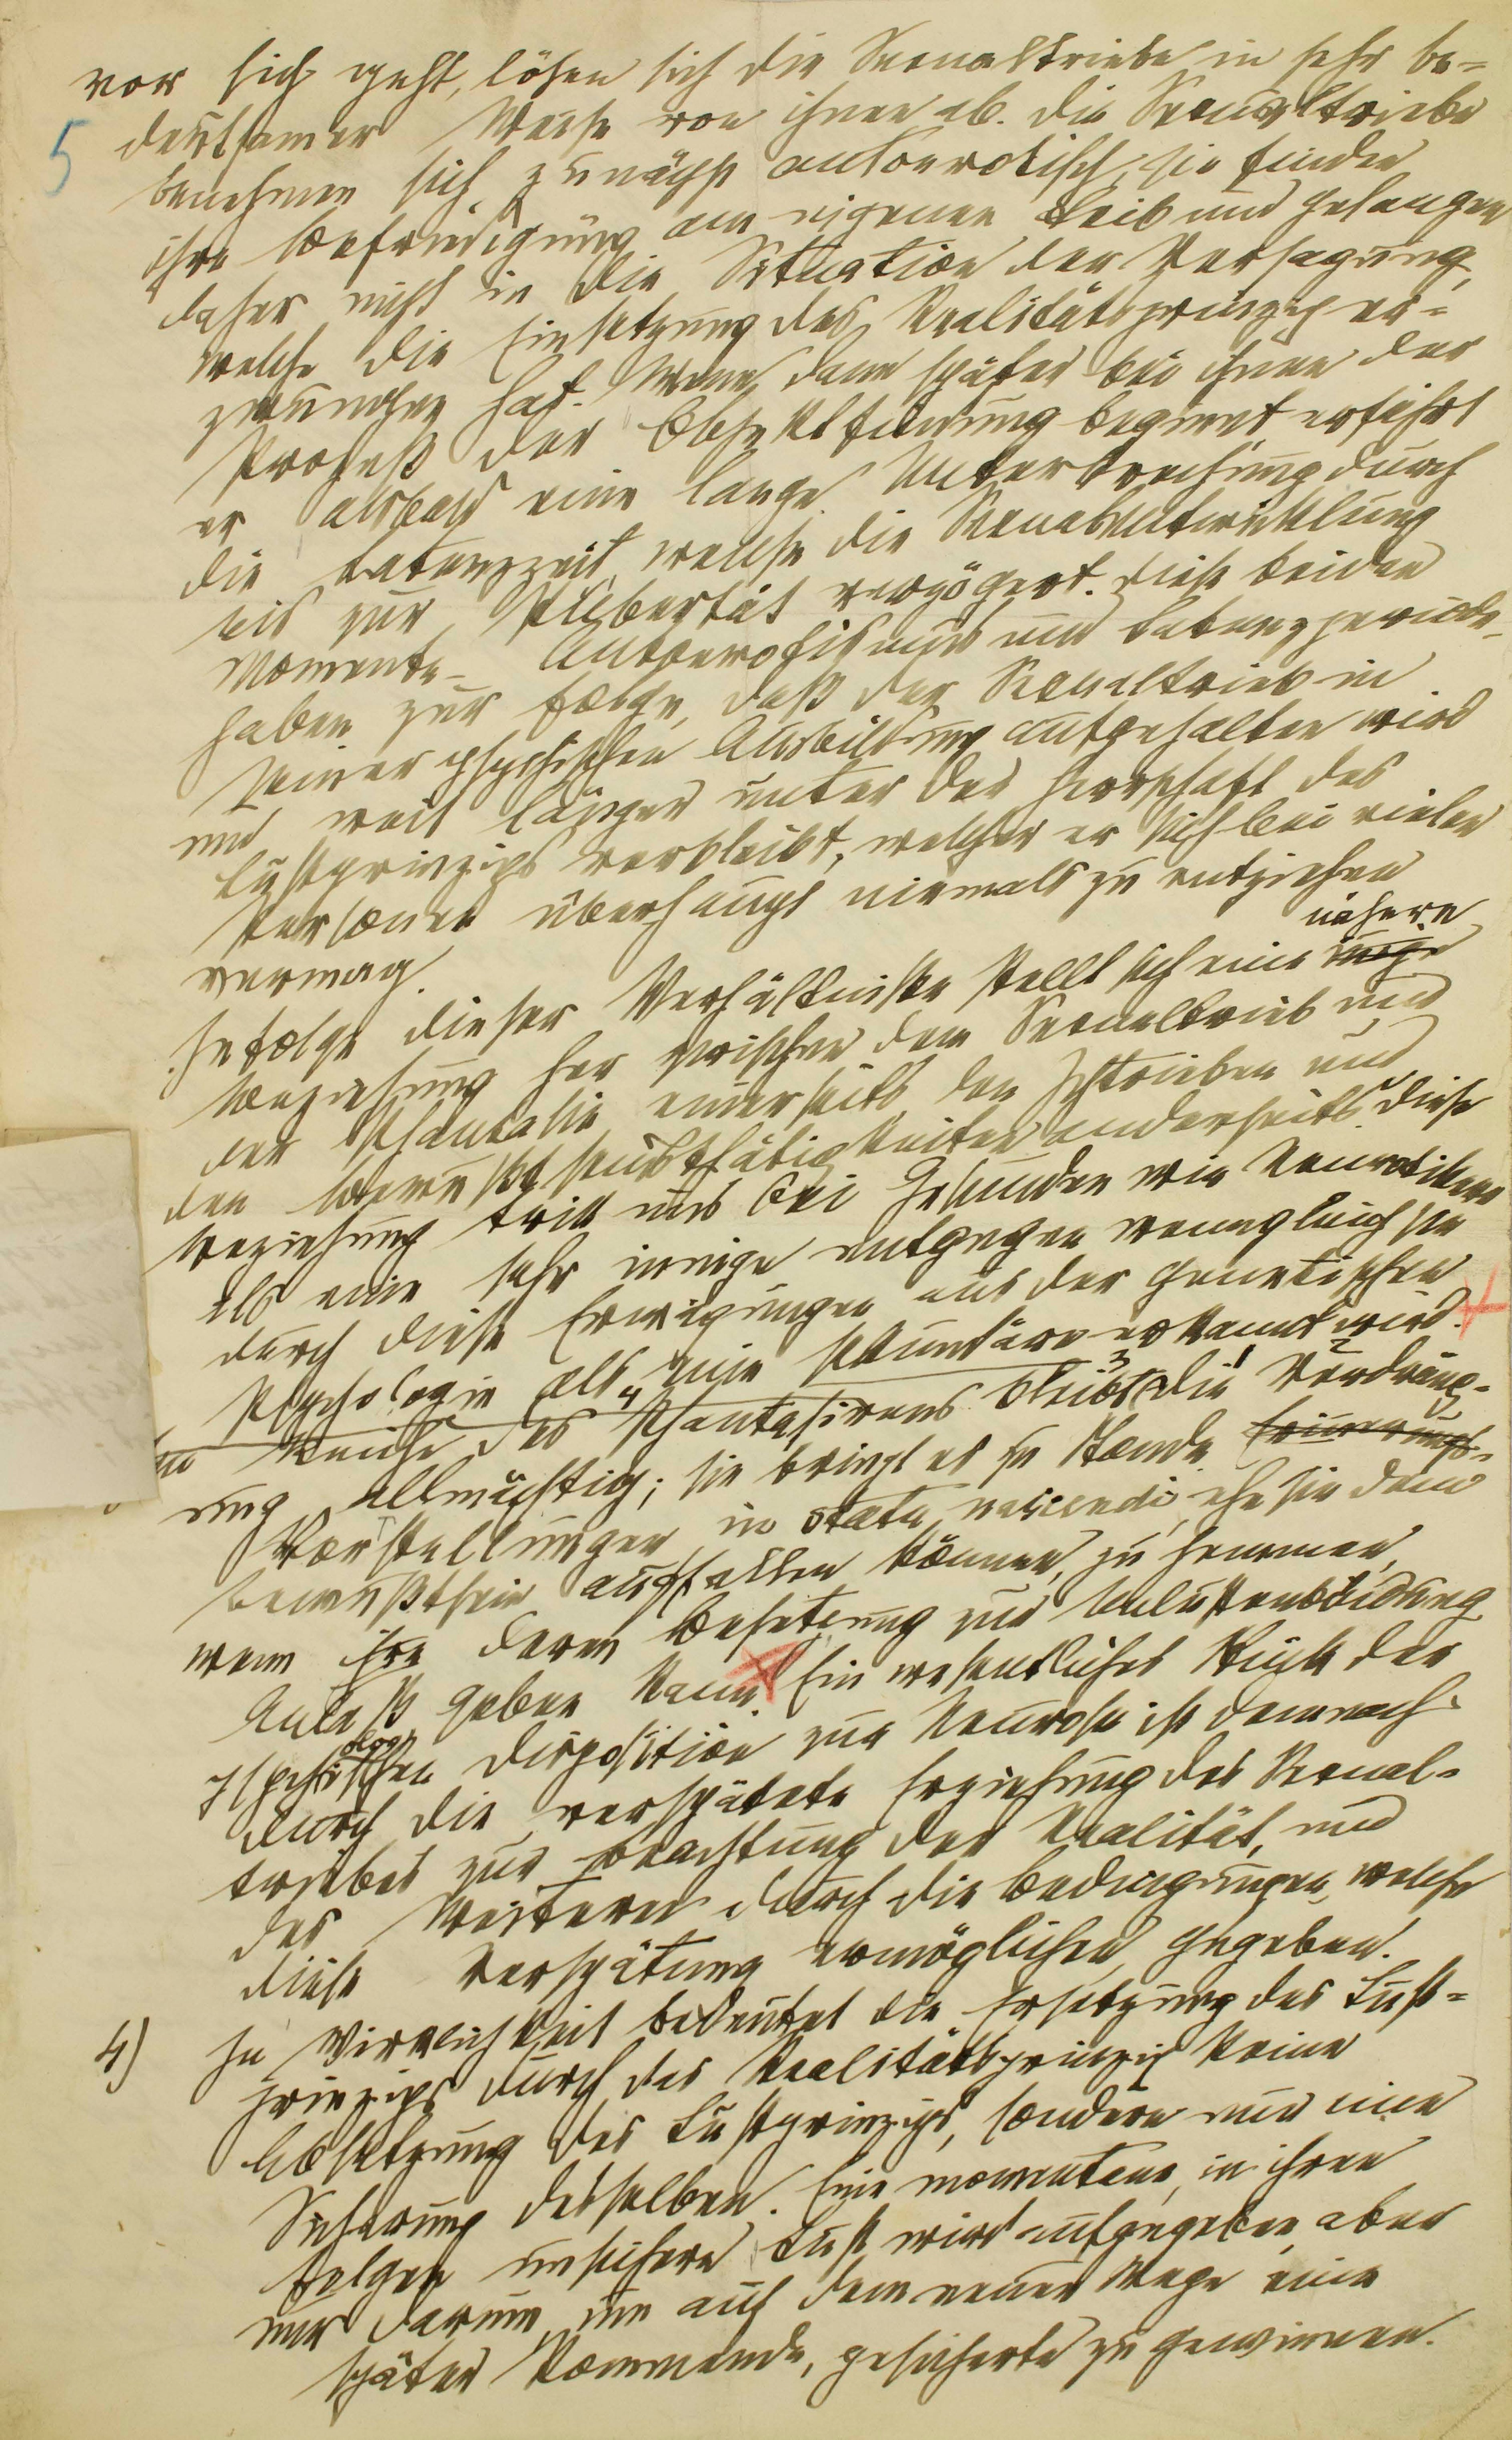 vor sich geht, lösen sich die Sexualtriebe in sehr be-
5 deutsamer Weise von ihnen ab. Die Sexualtriebe
benehmen sich zunächst autoerotisch, sie finden
ihre Befriedigung am eigenen Leib und gelangen
daher nicht in die Situation der Versagung,
welche die Einsetzung des Realitätsprinzips er-
zwungen hat. Wenn dann später bei ihnen der
Prozeß der Objektfindung beginnt, erfährt
er alsbald eine lange Unterbrechung durch
die Latenzzeit, welche die Sexualentwicklung
bis zur Pubertät verzögert. Diese beiden
Momente – Autoerotismus und Latenzperiode –
haben zur Folge, daß der Sexualtrieb in
seiner psychischen Ausbildung aufgehalten wird
und weit länger unter der Herrschaft des
Lustprinzips verbleibt, welcher er sich bei vielen
Personen überhaupt niemals zu entziehen
vermag.
nähere
Infolge dieser Verhältnisse stellt sich eine innige
Beziehung her zwischen dem Sexualtrieb und
der Phantasie einerseits, den Ichtrieben und
den Bewußtseinstätigkeiten anderseits. Diese
Beziehung tritt uns bei Gesunden wie Neurotikern
als eine sehr innige entgegen, wenngleich sie
durch diese Erwägungen aus der genetischen
Psychologie als eine sekundäre erkannt wird.
Im Reiche des 4 Phantasierens 3 bleibt 1 die 2 Verdräng-
ung allmächtig; sie bringt es zu Stande Erinnerungs-
Vorstellungen in statu nascendi, ehe sie dem
Bewußtsein auffallen können, zu hemmen,
wenn ihre deren Besetzung zur Unlustentbindung
Anlaß geben kann. Ein wesentliches Stück der
olog
psychischen Disposition zur Neurose ist demnach
durch die verspätete Erziehung des Sexual-
triebes zur Beachtung der Realität, und
des Weiteren durch die Bedingungen, welche
diese Verspätung ermöglichen, gegeben.
4) In Wirklichkeit bedeutet die Ersetzung des Lust-
prinzips durch das Realitätsprinzip keine
Absetzung des Lustprinzips, sondern nur eine
Sicherung desselben. Eine momentane, in ihren
Folgen unsichere Lust wird aufgegeben, aber
nur darum, um auf dem neuen Wege eine
später kommende, gesicherte zu gewinnen.